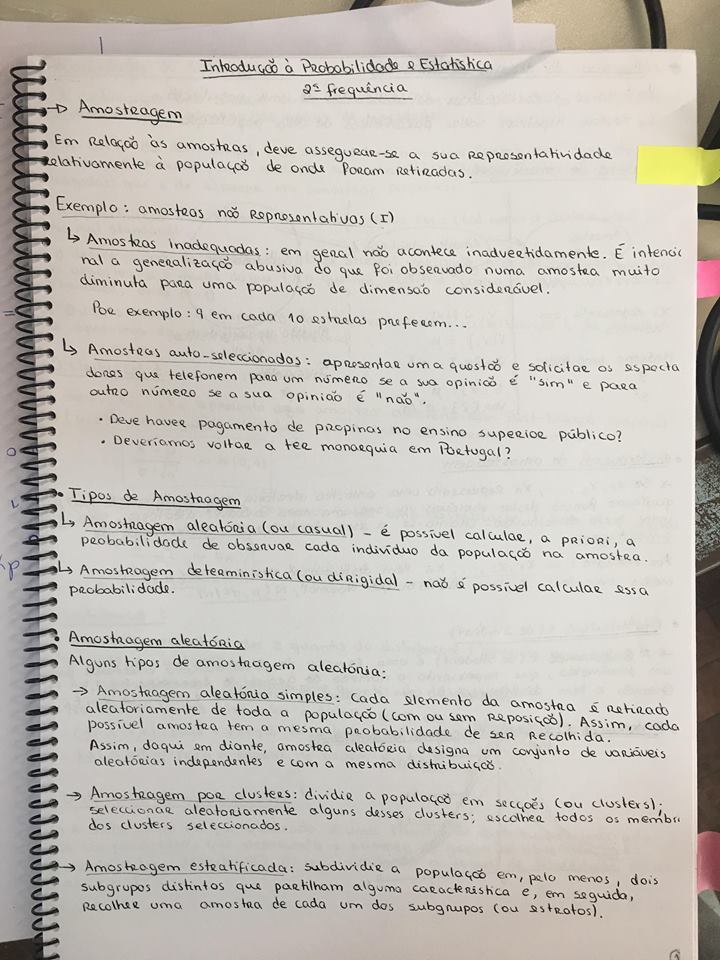 Introdução à Probabilidade e Estatística
2ª frequência
→ Amostragem
Em Relação às amostras, deve assegurar-se a sua Representatividade
relativamente à população de onde foram retiradas.
Exemplo: amostras não Representativas (I)
↳ Amostras Inadequadas: em geral não acontece inadvertidamente. É intencio
nal a generalização abusiva do que foi observado numa amostra muito
diminuta para uma população de dimensão considerável.
Por exemplo: 9 em cada 10 estrelas preferem...
↳ Amostras auto-seleccionadas: apresentar uma questão e solicitar os especta
dores que telefonem para um número se a sua opinião é "sim" e para
outro número se a sua opinião é "não".
• Deve haver pagamento de propinas no ensino superior público?
• Deveríamos voltar a ter monarquia em Portugal?
• Tipos de Amostragem
↳ Amostragem aleatória (ou casual) - é possível calcular, a priori, a
probabilidade de observar cada indivíduo da população na amostra.
↳ Amostragem determinística (ou dirigida) - não é possível calcular essa
probabilidade.
• Amostragem aleatória
Alguns tipos de amostragem aleatória:
→ Amostragem aleatória simples: cada elemento da amostra é retirado
aleatoriamente de toda a população (com ou sem reposição). Assim, cada
possível amostra tem a mesma probabilidade de ser recolhida.
Assim, daqui em diante, amostra aleatória designa um conjunto de variáveis
aleatórias independentes e com a mesma distribuição.
→ Amostragem por clusters: dividir a população em secções (ou clusters);
seleccionar aleatoriamente alguns desses clusters; escolher todos os membro
dos clusters seleccionados.
→ Amostragem estratificada: subdividir a população em, pelo menos, dois
subgrupos distintos que partilham alguma característica e, em seguida,
recolher uma amostra de cada um dos subgrupos (ou estratos).